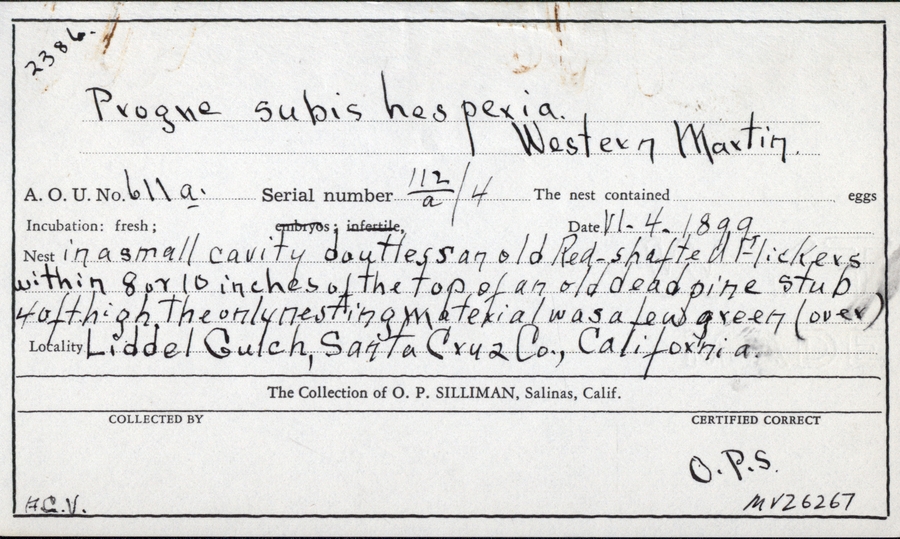 2386.
Progne subis hesperia.
Western Martin.
A. O. U. No. 611a. Serial number 112/a/4 The nest contained eggs
Incubation: fresh; embryos; infertile, Date VI-4-1899
Nest in a small cavity doutless an old Red-shafted Flickers
within 8 or 10 inches of the top of an old dead pine stub
40ft high The only nesting material was a few green (over)
Locality Liddel Gulch, Santa Cruz Co., California.
The Collection of O. P. SILLIMAN, Salinas, Calif.
COLLECTED BY CERTIFIED CORRECT
O.P.S.
MVZ6267